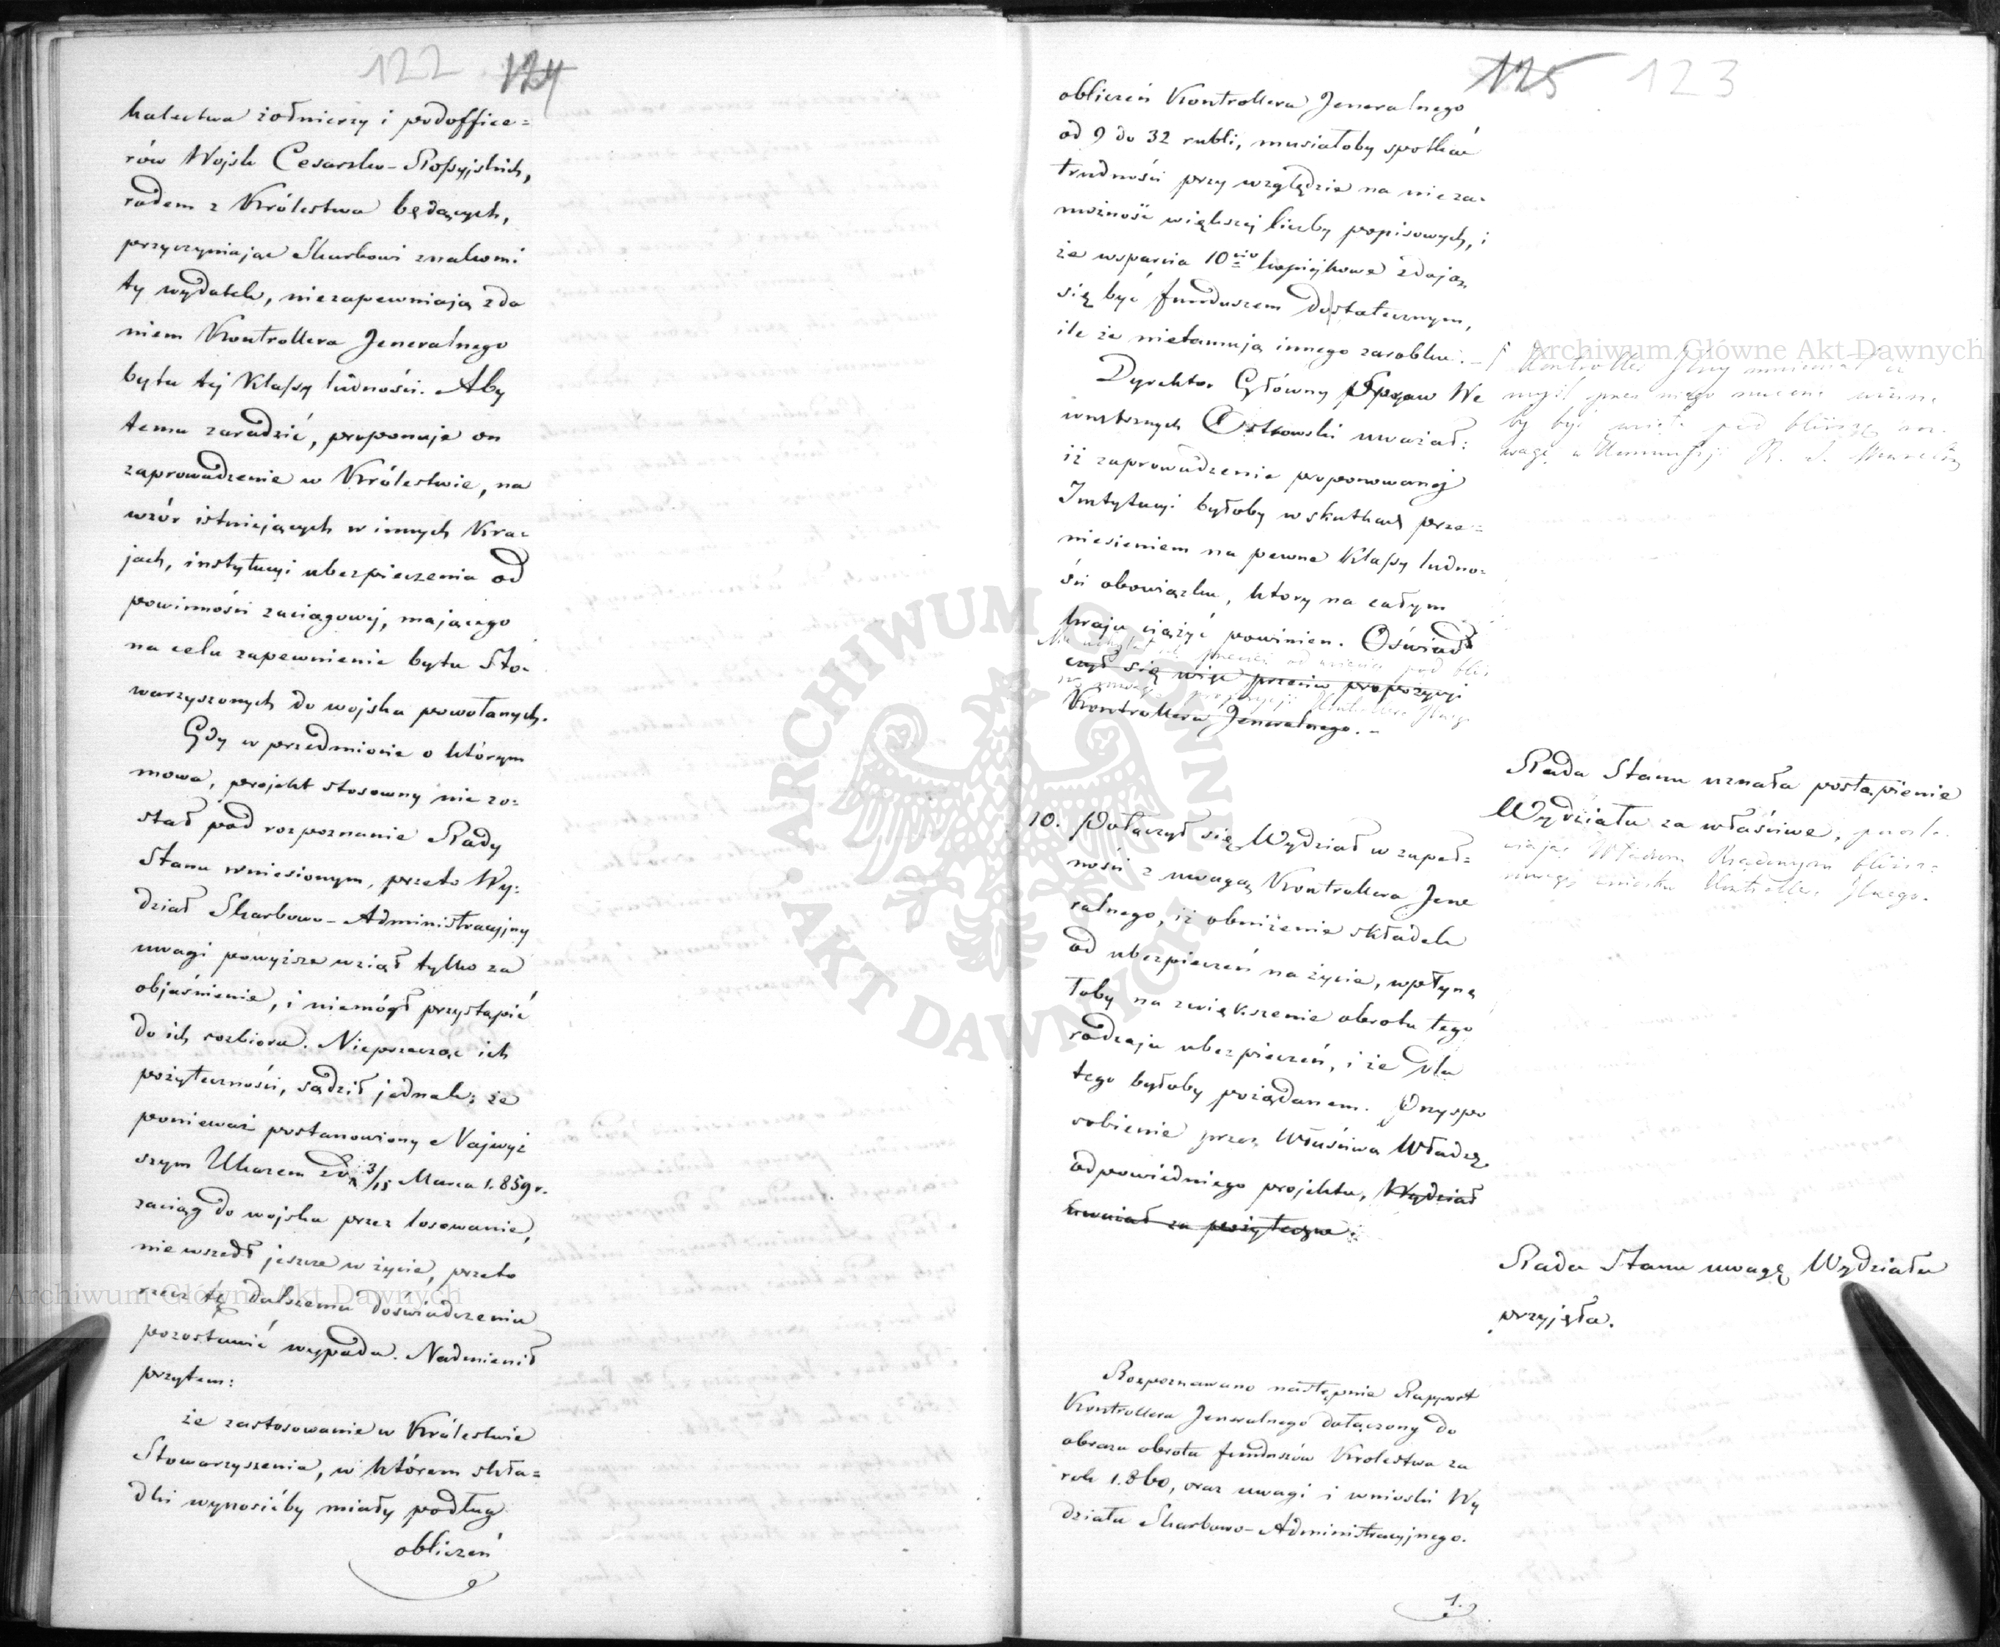 122 124
kalectwa żołnierzy i podoffice=
rów Wojsk Cesarsko-Rossyjskich,
rodem z Królestwa będących,
przyczyniając Skarbowi znakomi
ty wydatek, niezapewniają zda
niem Kontrollera Jeneralnego
bytu tej klassy ludności. Aby
temu zaradzić, proponuje on
zaprowadzenie w Królestwie, na
wzór istniejących w innych Kra=
jach, instytucyi ubezpieczenia od
powinności zaciągowej, mającego
na celu zapewnienie bytu Sto=
warzyszonych do wojska powołanych.
Gdy w przedmiocie o którym
mowa, projekt stosowny nie zo=
stał pod rozpoznanie Rady
Stanu wniesionym, przeto Wy=
dział Skarbowo-Administracyjny
uwagi powyższe wziął tylko za
objaśnienie, i niemógł przystąpić
do ich rozbioru. Nieprzecząc ich
pożyteczności, sądził jednak; że
ponieważ postanowiony Najwyż
szym Ukazem z dn 3/15 Marca 1.859 r.
zaciąg do wojska przez losowanie,
nie wszedł jeszcze w życie, przeto
rzecz tę dalszemu doświadczeniu
pozostawić wypada. Nadmienił
przytem:
że zastosowanie w Królestwie
Stowarzyszenia, w którem skła=
dki wynosićby miały podług
obliczeń
125 123
obliczeń Kontrollera Jeneralnego
od 9 do 32 rubli, musiałoby spotkać
trudności przy względzie na nieza=
możność większej liczby popisowych, i
że wsparcia 10cio kopiejkowe zdają
się być funduszem dostatecznym,
ile że nietamują innego zarobku. -
Dyrektor Główny Spraw We
wnętrznych Ostrowski uważał:
iż zaprowadzenie proponowanej
Instytucyi byłoby w skutkach prze=
niesieniem na pewne klassy ludno=
ści obowiązku, który na całym
kraju ciążyć powinien. Oświad
czył się więc przeciw propozycyi
Kontrollera Jeneralnego. -
Kontroller Jlny
myśl przez niego
by być wzięta pod bliższą roz=
wagę w Kommissyi R. S.
pod bliż
uwagę propozycyi Kontrollera Jlnego
Rada Stanu uznała postąpienie
Wydziału za właściwe,
Władzom Rządowym bliższą
uwagę wniosku Kontrollera Jlnego.
10. Połączył się Wydział w zupeł=
ności z uwagą Kontrollera Jene
ralnego, iż obniżenie składek
od ubezpieczeń na życie, wpłynę
łoby na zwiększenie obrotu tego
rodzaju ubezpieczeń, i że dla
tego byłoby pożądanem. Przyspo
sobienie przez właściwą Władzę
odpowiedniego projektu, Wydział
uważał za pożyteczne.
Rada Stanu uwagę Wydziału
przyjęła.
Rozpoznawano następnie Rapport
Kontrollera Jeneralnego dołączony do
obrazu obrotu funduszów Królestwa za
rok 1.860, oraz uwagi i wnioski Wy
działu Skarbowo-Administracyjnego.
1.
Archiwum Główne Akt Dawnych
Archiwum Główne Akt Dawnych
ARCHIWUM GŁÓWNE AKT DAWNYCH